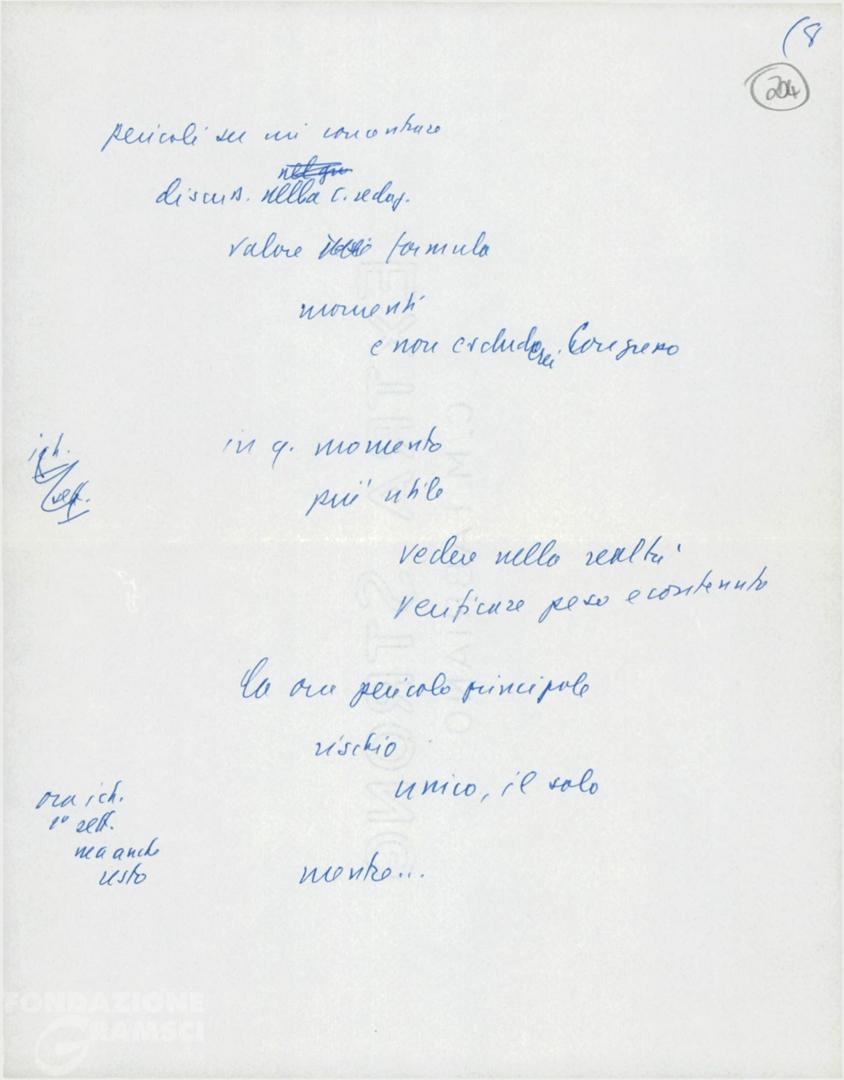 (8
204
pericoli su cui concentrare
discus. nella c. redaz.
valore formula
momenti
e non escluderei Congresso
in q. momento
più utile
ich.
sett.
vedere nella realtà
verificare peso e contenuto
ora pericolo principale
rischio
unico, il solo
ora ich.
1° sett.
ma anche
resto
mentre...
FONDAZIONE
GRAMSCI
EXTRA STRONG